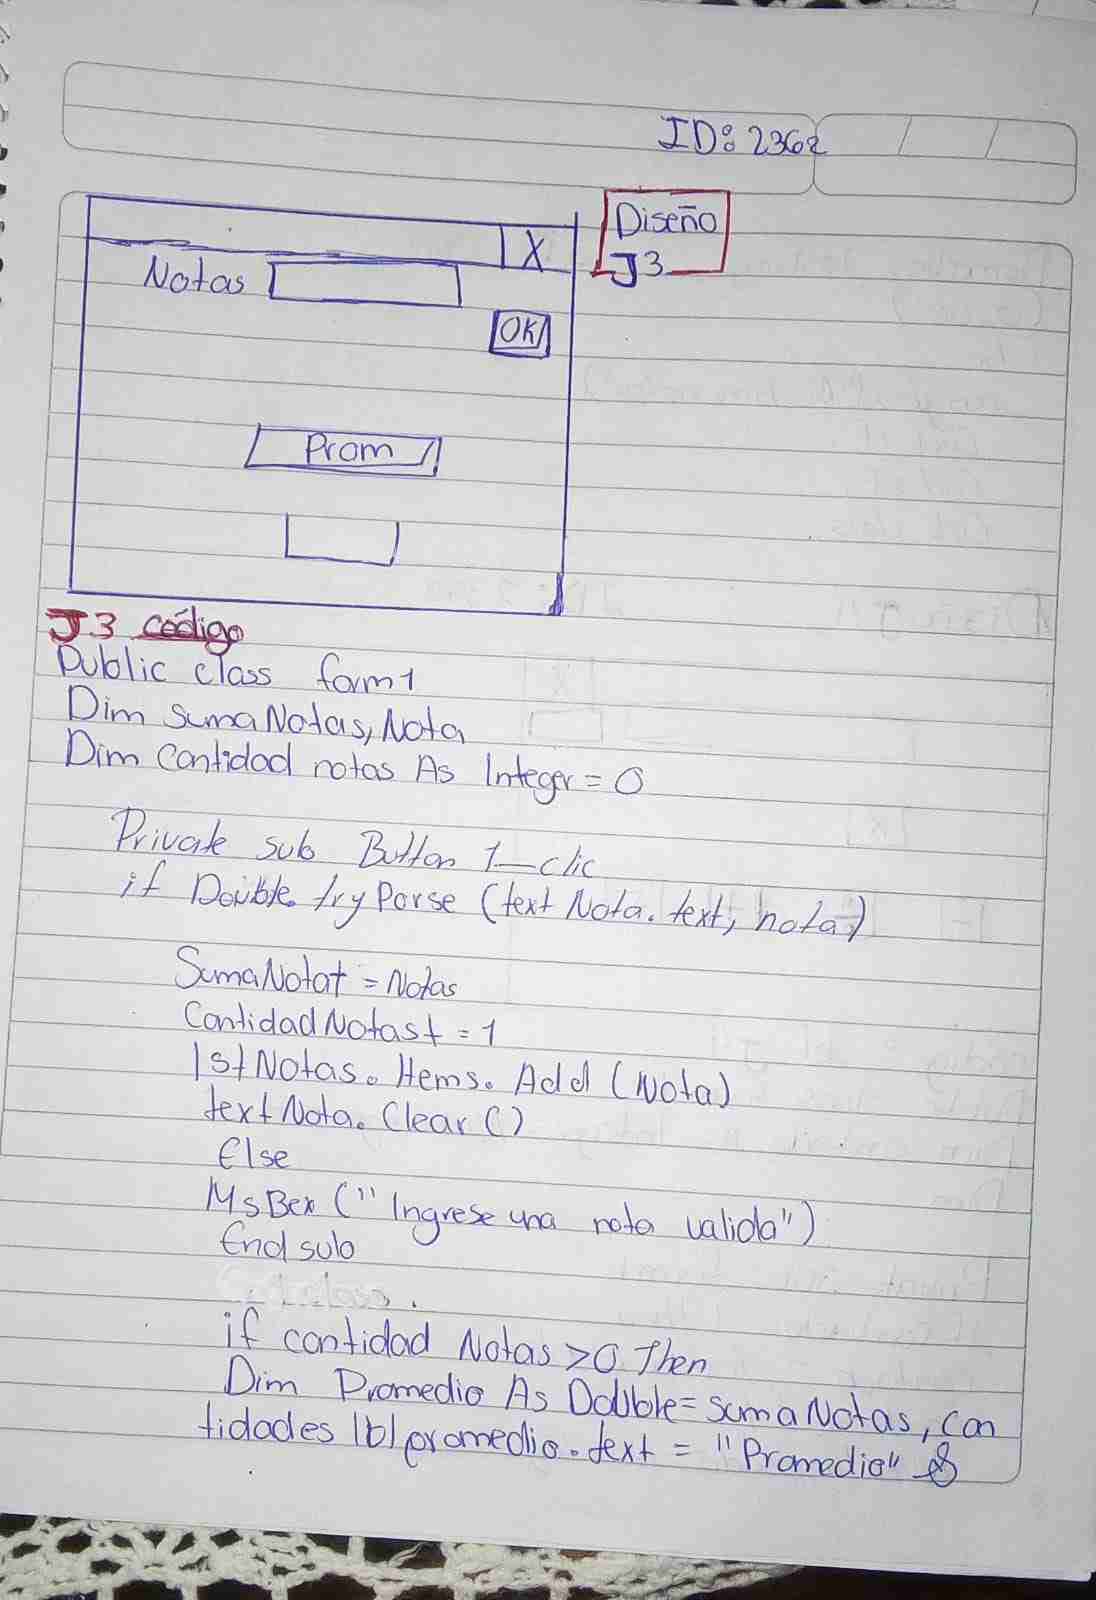 ID: 2362
Diseño
J3
X
Notas
OK
Prom
J3 código
Public class form1
Dim sumaNotas, Nota
Dim Cantidad notas As Integer = 0
Private sub Button 1_clic
if Double. try Parse (text Nota. text, nota)
SumaNotat = Notas
CantidadNotast = 1
lstNotas. Items. Add (Nota)
textNota. Clear ()
Else
MsBox ("Ingrese una nota valida")
End sub
if cantidad Notas >0 Then
Dim Promedio As Double = sumaNotas, can
tidades lblpromedio. text = "Promedio" &